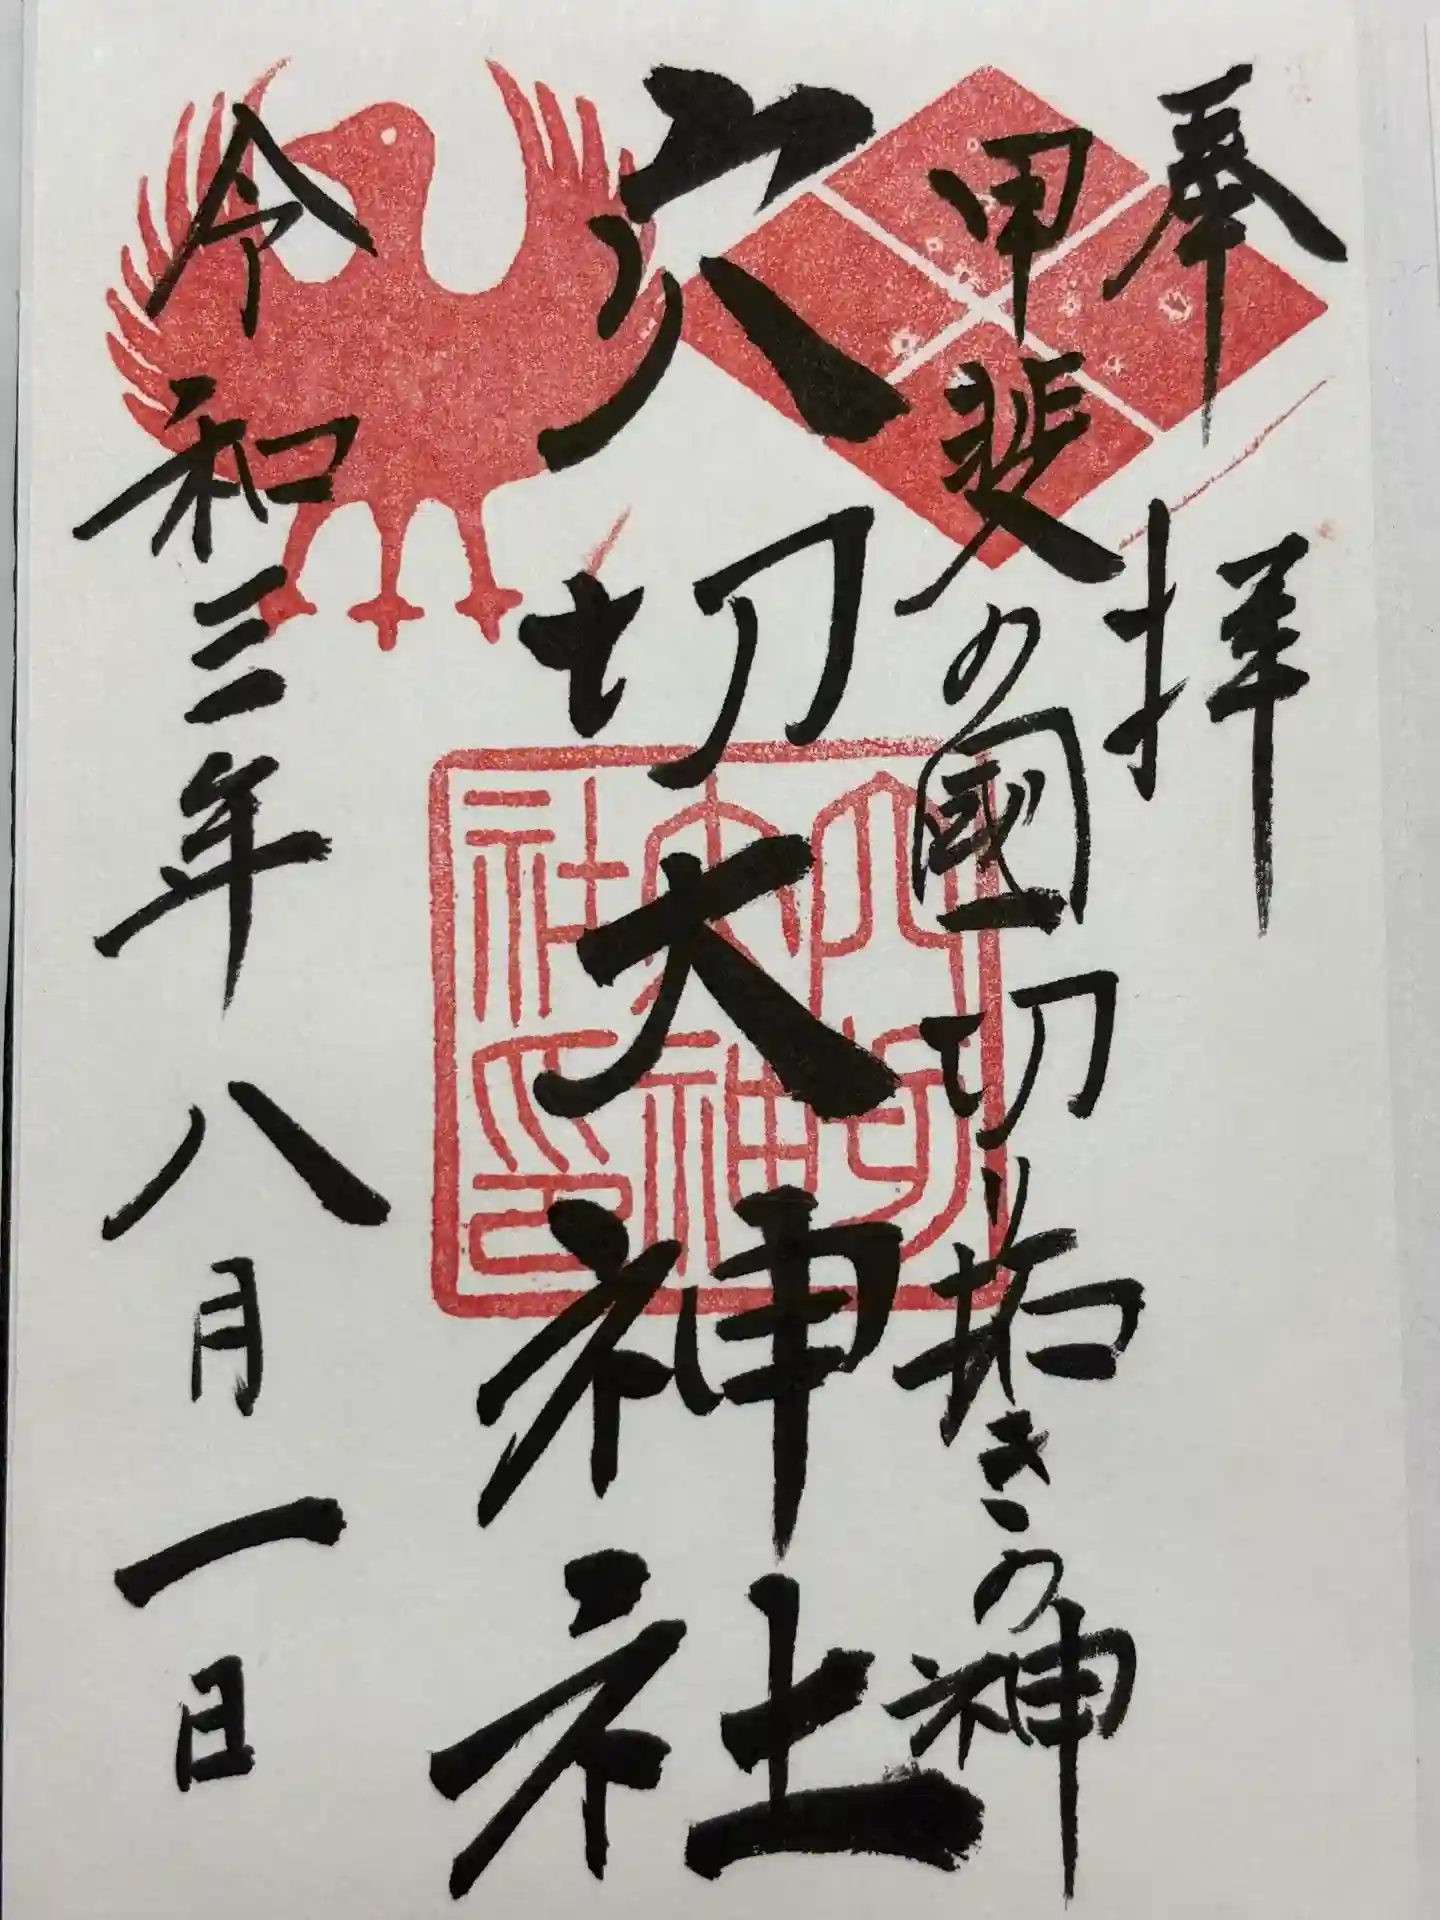 奉拝
甲斐の國切り拓きの神
穴切大神社
穴切大神社印
令和三年八月一日